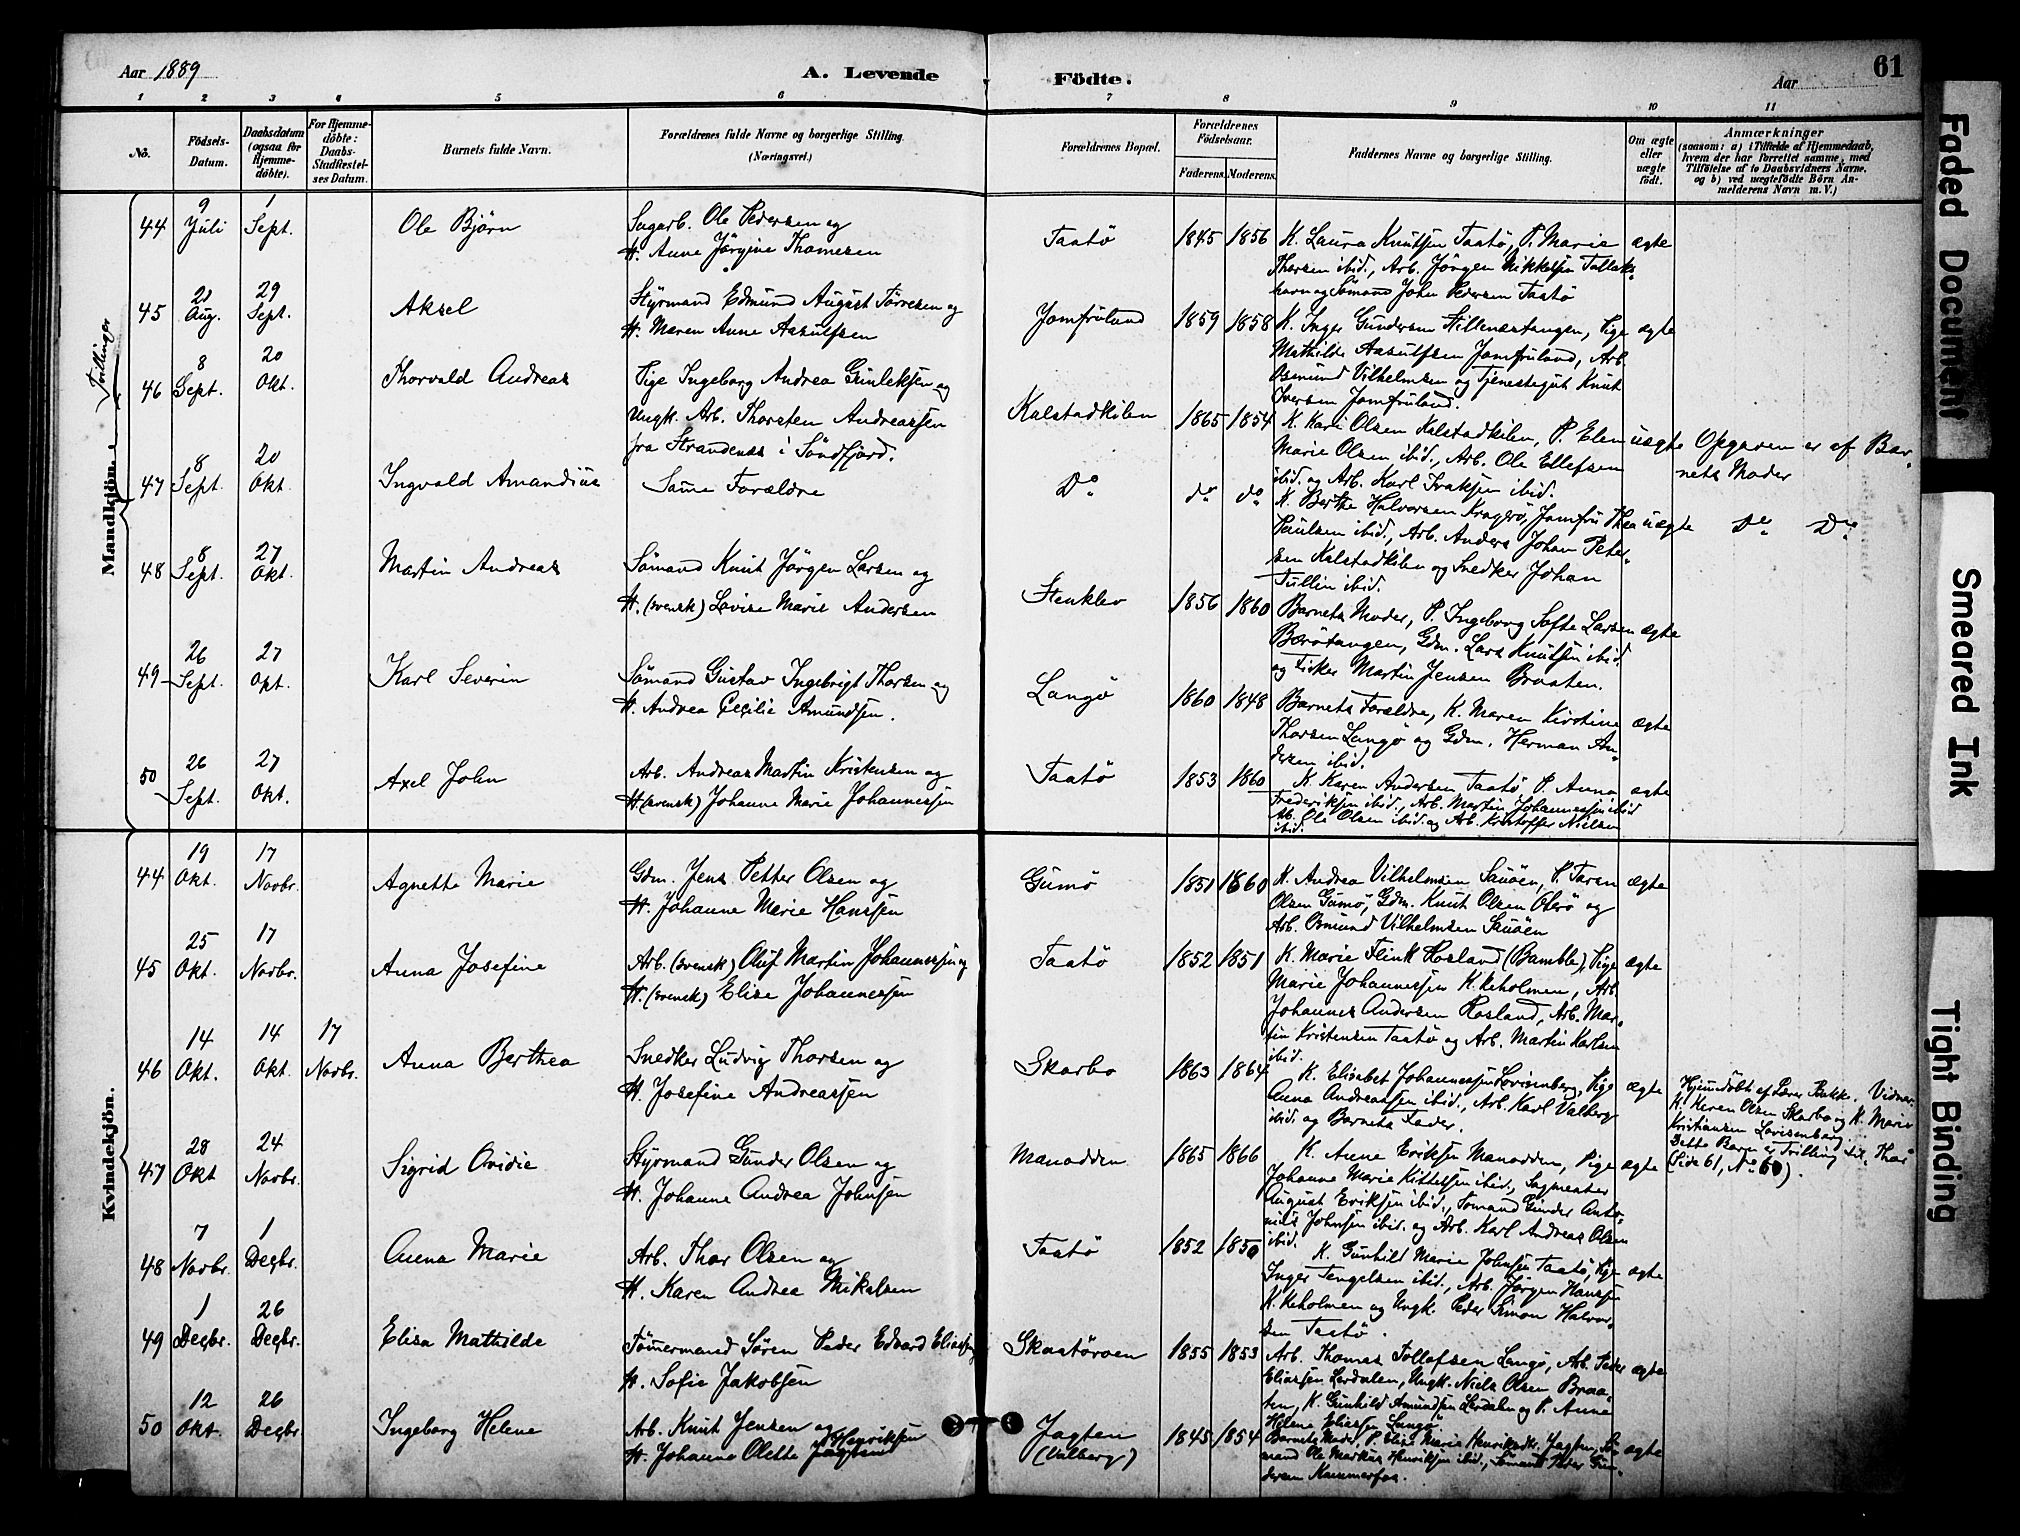 Aar 1889
A. Levende
Födte.
Aar
61
1 2 3 4 5 6 7 8 9 10 11
No.
Födsels-Datum.
Daabsdatum (ogsaa for Hjemme-döbte).
For Hjemme-döbte: Daabs-Stadfæstel-ses Datum.
Barnets fulde Navn.
Forældrenes fulde Navne og borgerlige Stilling. (Næringsvei.)
Forældrenes Bopæl.
Forældrenes Födselsaar.
Faderens. Moderens.
Faddernes Navne og borgerlige Stilling.
Om ægte eller uægte födt.
Anmærkninger
(saasom: a) i Tilfælde af Hjemmedaab,
hvem der har forrettet samme, med
Tilföielse af to Daabsvidners Navne,
og b) ved uægtefödte Börn An-
melderens Navn m. V.)
Mandkjön.
Tvillinger
44 9 Juli 1 Sept. Ole Björn
Sagarb. Ole Pedersen og
H. Anne Jörgine Thomesen
Taatö 1845 1856
K. Laura Knutsen Taatö, P. Marie
Thorsen ibid., Arb. Jörgen Mikkelsen Tallaks-
havn og Sömand John Pedersen Taatö
ægte
45 21 Aug. 29 Sept. Aksel
Styrmand Edmund August Törresen og
H. Maren Anne Aasulfsen
Jomfruland 1859 1858
K. Inger Gundersen Stillenæstangen, Pige
Mathilde Aasulfsen Jomfruland, Arb.
Osmund Vilhelmsen og Tjenestegut Knut
Iversen Jomfruland.
ægte
46 8 Sept. 20 Okt. Thorvald Andreas
Pige Ingeborg Andrea Gunleksen og
Ungk. Arb. Thorsten Andreassen
fra Strandenæs i Söndfjord.
Kalstadkilen 1865 1854
K. Kari Olsen Kalstadkilen, P. Elen
Marie Olsen ibid., Arb. Ole Ellefsen
ibid. og Arb. Karl Isaksen ibid.
uægte
Opgaven er af Bar-
nets Moder
47 8 Sept. 20 Okt. Ingvald Amandius
Same Forældre
Do do do
K. Berthe Halvorsen Kragerö, Jomfru Thea
Paulsen ibid., Arb. Anders Johan Peter-
sen Kalstadkilen og Snedker Johan
Tullin ibid.
uægte
Do Do
48 8 Sept. 27 Okt. Martin Andreas
Sömand Knut Jörgen Larsen og
H. (svensk) Lovise Marie Andersen
Stenklev 1856 1860
Barnets Moder, P. Ingeborg Softe Larsen
Barötangen, Gdm. Lars Knutsen ibid.
og Fisker Martin Jensen Braaten.
ægte
49 26 Sept. 27 Okt. Karl Severin
Sömand Gustav Ingebrigt Thorsen og
H. Andrea Cecilie Amundsen.
Langö 1860 1848
Barnets Forældre, K. Maren Kirstine
Thorsen Langö og Gdm. Herman An-
dersen ibid.
ægte
50 26 Sept. 27 Okt. Axel John
Arb. Andreas Martin Kristensen og
H. (svensk) Johanne Marie Johannessen
Taatö 1853 1860
K. Karen Andersen Taatö, P. Anna
Frederiksen ibid., Arb. Martin Johannessen ibid
Arb. Ole Olsen ibid. og Arb. Kristoffer Nielsen
ibid.
ægte
Kvindekjön.
44 19 Okt. 17 Novbr. Agnette Marie
Gdm. Jens Petter Olsen og
H. Johanne Marie Hanssen
Gumö 1851 1860
K. Andrea Vilhelmsen Sauöen, P. Taran
Olsen Gumö, Gdm. Knut Olsen Oterö og
Arb. Osmund Vilhelmsen Sauöen
ægte
45 25 Okt. 17 Novbr. Anna Josefine
Arb. (svensk) Oluf Martin Johannessen og
H. (svensk) Elise Johannessen
Taatö 1852 1851
K. Marie Flink Rosland (Bamble), Pige
Marie Johannessen K. Kholmen, Arb.
Johannes Andersen Rosland, Arb. Mar-
tin Kristensen Taatö og Arb. Martin Karlsen
ibid.
ægte
46 14 Okt. 14 Okt. 17 Novbr. Anna Berthea
Snedker Ludvig Thorsen og
H. Josefine Andreassen
Skarbo 1863 1864
K. Elisabet Johannessen Lovisenberg, Pige
Anna Andreassen ibid., Arb. Karl Valberg
ibid. og Barnets Fader.
ægte
Hjemdöbt af Lærer Bakk. Vidner.
K. Karen Olsen Skarbo og K. Marie
Kristiansen Lovisenberg.
Dette Barn er Tvilling til Thor
(Side 61, No 60).
47 28 Okt 24 Novbr. Sigrid Ovidie
Styrmand Gunder Olsen og
H. Johanne Andrea Johnsen
Manodden 1865 1866
K. Anne Eriksen Manodden, Pige
Johanne Marie Kittelsen ibid., Sagmester
August Eriksen ibid., Sömand Gunder Anto-
nius Johnsen ibid. og Arb. Karl Andreas Olsen
ibid.
ægte
48 7 Novbr. 1 Decbr. Anna Marie
Arb. Thor Olsen og
H. Karen Andrea Mikalsen
Taatö 1852 1850
K. Gunhild Marie Johnsen Taatö, Pige
Inger Tengelsen ibid., Arb. Jörgen Hanssen
K. Kholmen og Ungk. Peder Simon Halvor-
sen Taatö.
ægte
49 1 Decbr. 26 Decbr. Elisa Mathilde
Tömmermand Sören Peder Edvard Eliassen
H. Sofie Jakobsen
Skaatöroen 1855 1853
Arb. Thomas Tollofsen Langö, Arb. Peder
Eliassen Lerdalen, Ungk. Niels Olsen Braa-
ten, K. Gunhild Amundsen Lerdalen og P. Anne
Helene Eliassen Langö
ægte
50 12 Okt. 26 Decbr Ingeborg Helene
Arb. Knut Jensen og
H. Johanne Olette Henriksen
Jagten (Valberg) 1845 1854
Barnets Moder, P. Elise Marie Henriksdtr. Jagten, Sö-
mand Ole Markus Henriksen ibid., Sömand Peder Gun-
dersen Kammerfos.
ægte
Faded Document
Smeared Ink
Tight Binding